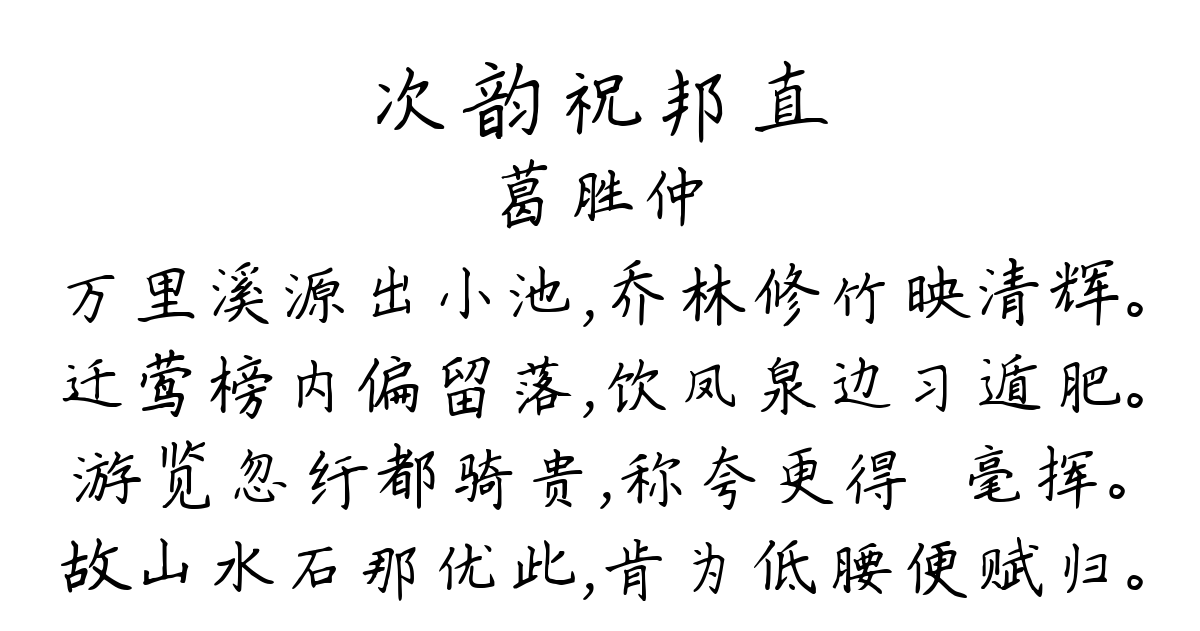 次韵祝邦直
葛胜仲
万里溪源出小池,乔林修竹映清辉。
迁莺榜内偏留落,饮凤泉边习遁肥。
游览忽纡都骑贵,称夸更得 毫挥。
故山水石那优此,肯为低腰便赋归。